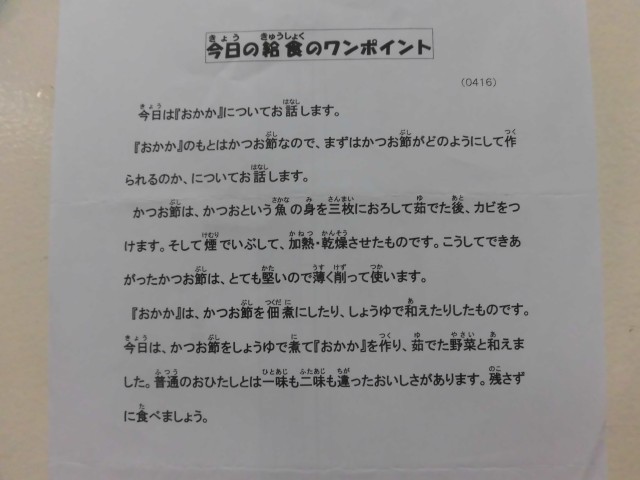 今日の給食のワンポイント
（0416）
今日は『おかか』についてお話します。
『おかか』のもとはかつお節なので、まずはかつお節がどのようにして作
られるのか、についてお話します。
かつお節は、かつおという魚の身を三枚におろして茹でた後、カビをつ
けます。そして煙でいぶして、加熱・乾燥させたものです。こうしてできあ
がったかつお節は、とても堅いので薄く削って使います。
『おかか』は、かつお節を佃煮にしたり、しょうゆで和えたりしたものです。
今日は、かつお節をしょうゆで煮て『おかか』を作り、茹でた野菜と和えま
した。普通のおひたしとは一味も二味も違ったおいしさがあります。残さず
に食べましょう。